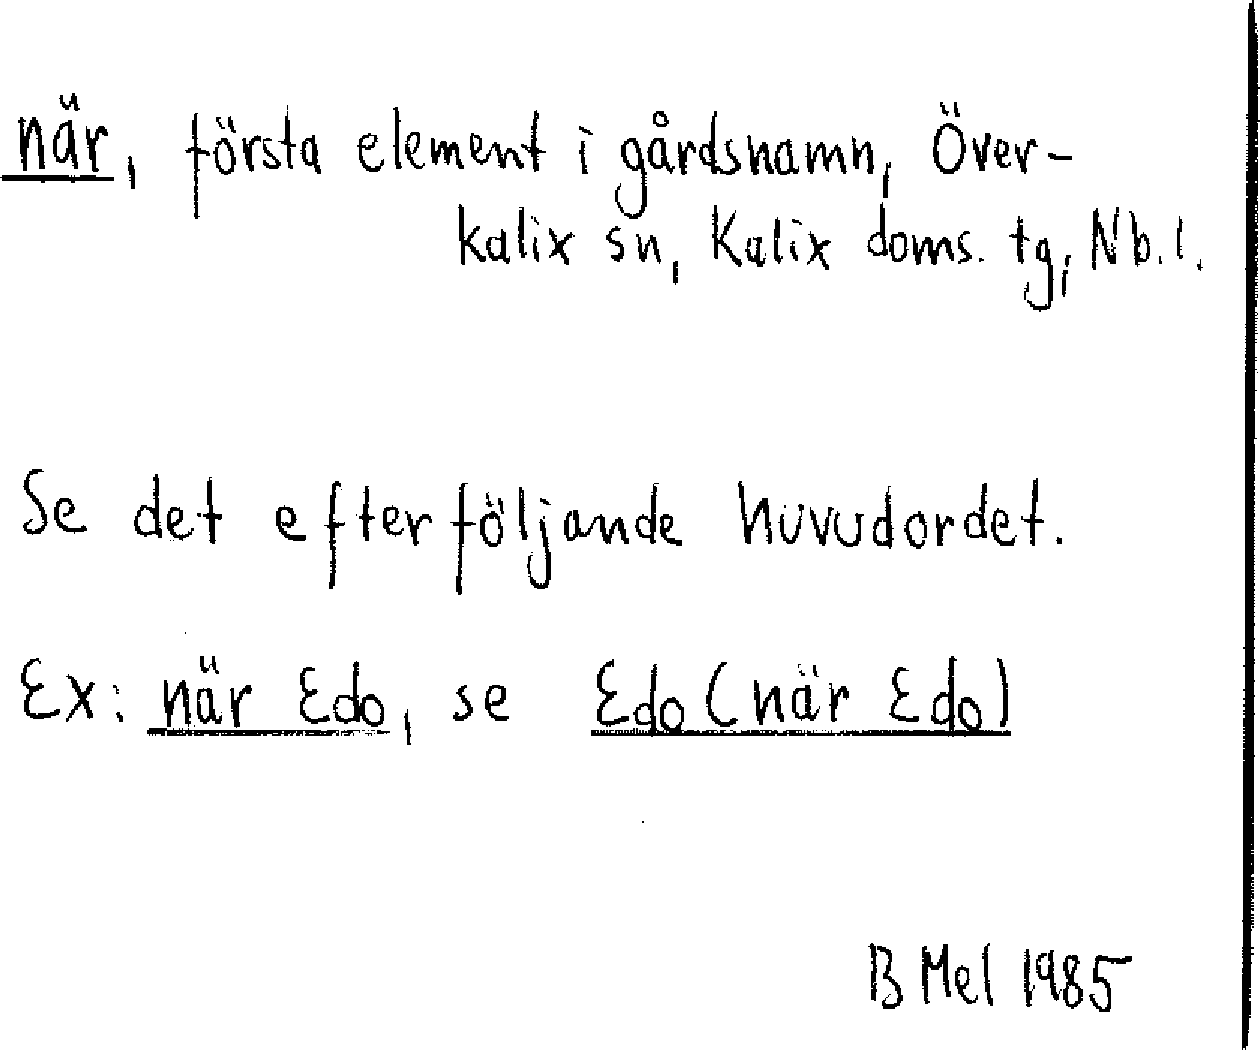 när, första element i gårdsnamn, Över-
kalix sn, Kalix doms. tg, Nb.l.
Se det efterföljande huvudordet.
Ex: när Edo, se Edo (när Edo)
B Mel 1985